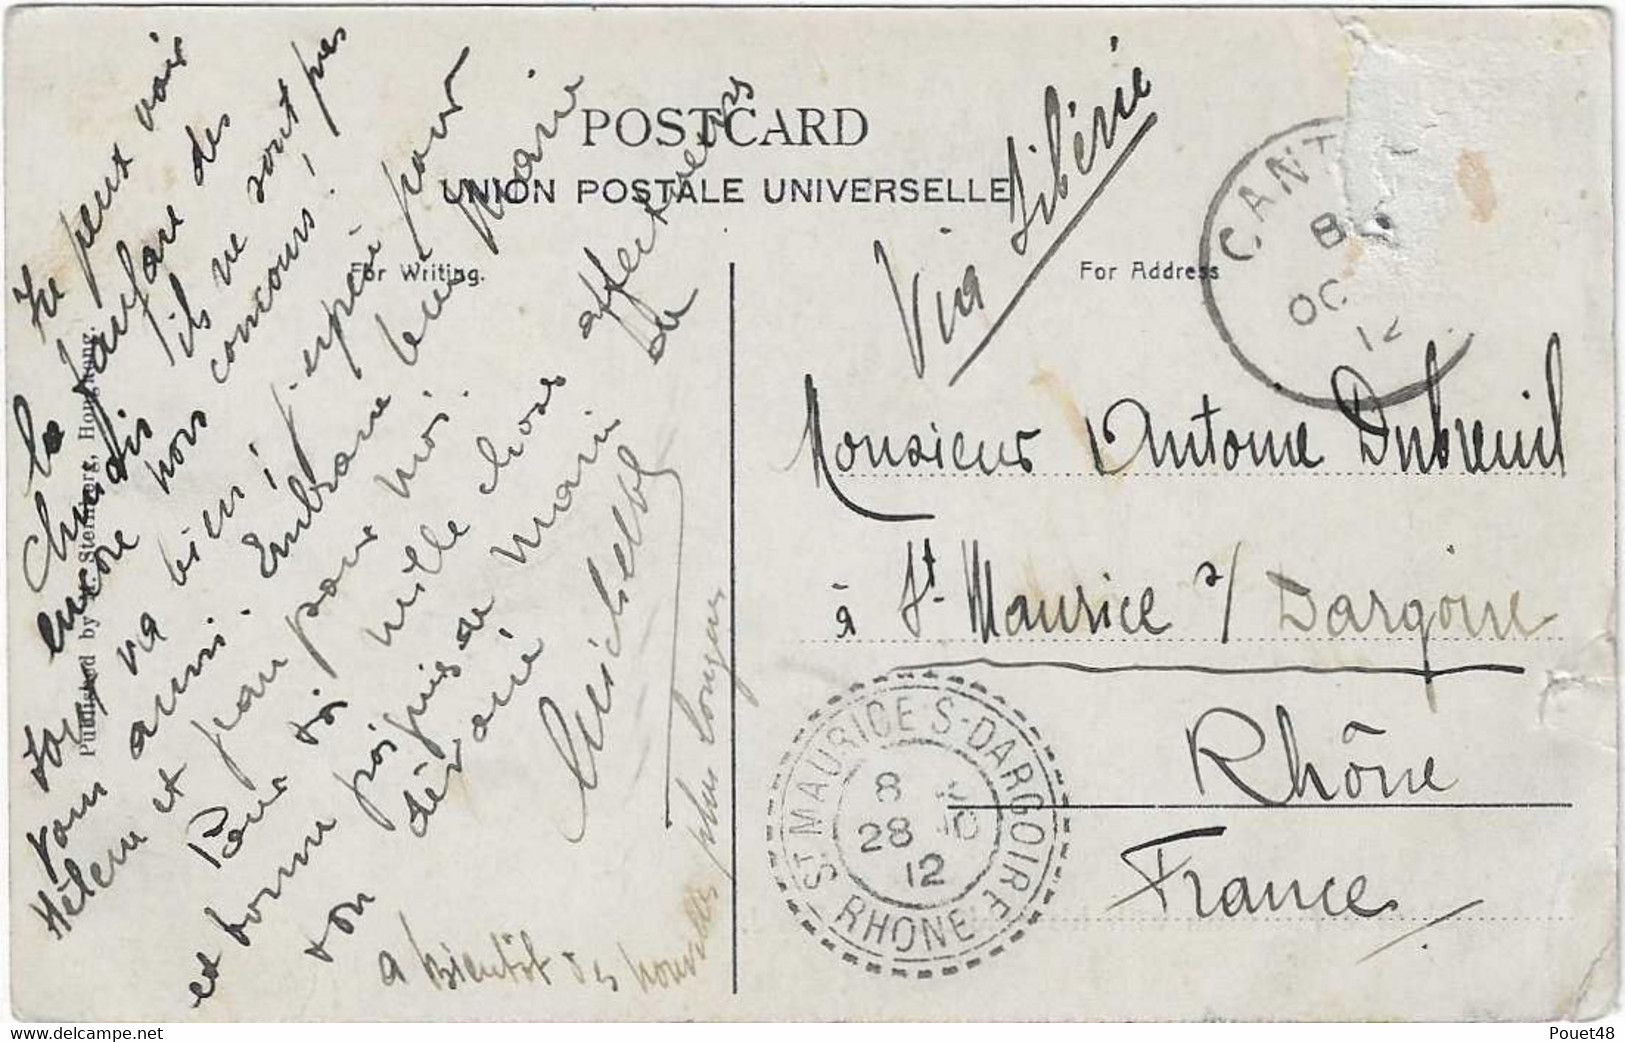 POSTCARD
UNION POSTALE UNIVERSELLE
For Writing.
For Address
Published by M. Sternberg, Hongkong.
Via Sibérie
CANT
8
OC
12
Monsieur Antoine Dubreuil
à St Maurice s/ Dargoire
Rhône
France
ST MAURICE S-DARGOIRE
RHONE
8
28 10
12
Je peux voir
la fanfare des
Chinois ils ne sont pas
encore nos concours!
Tout va bien! j'espère pour
vous aussi. Embrasse bien Marie
Hélène et Jean pour moi.
Pour toi mille choses affectueuses
et bonne poignée de main de
ton dévoué
à bientôt des nouvelles plus longues
www.delcampe.net
Pouet48